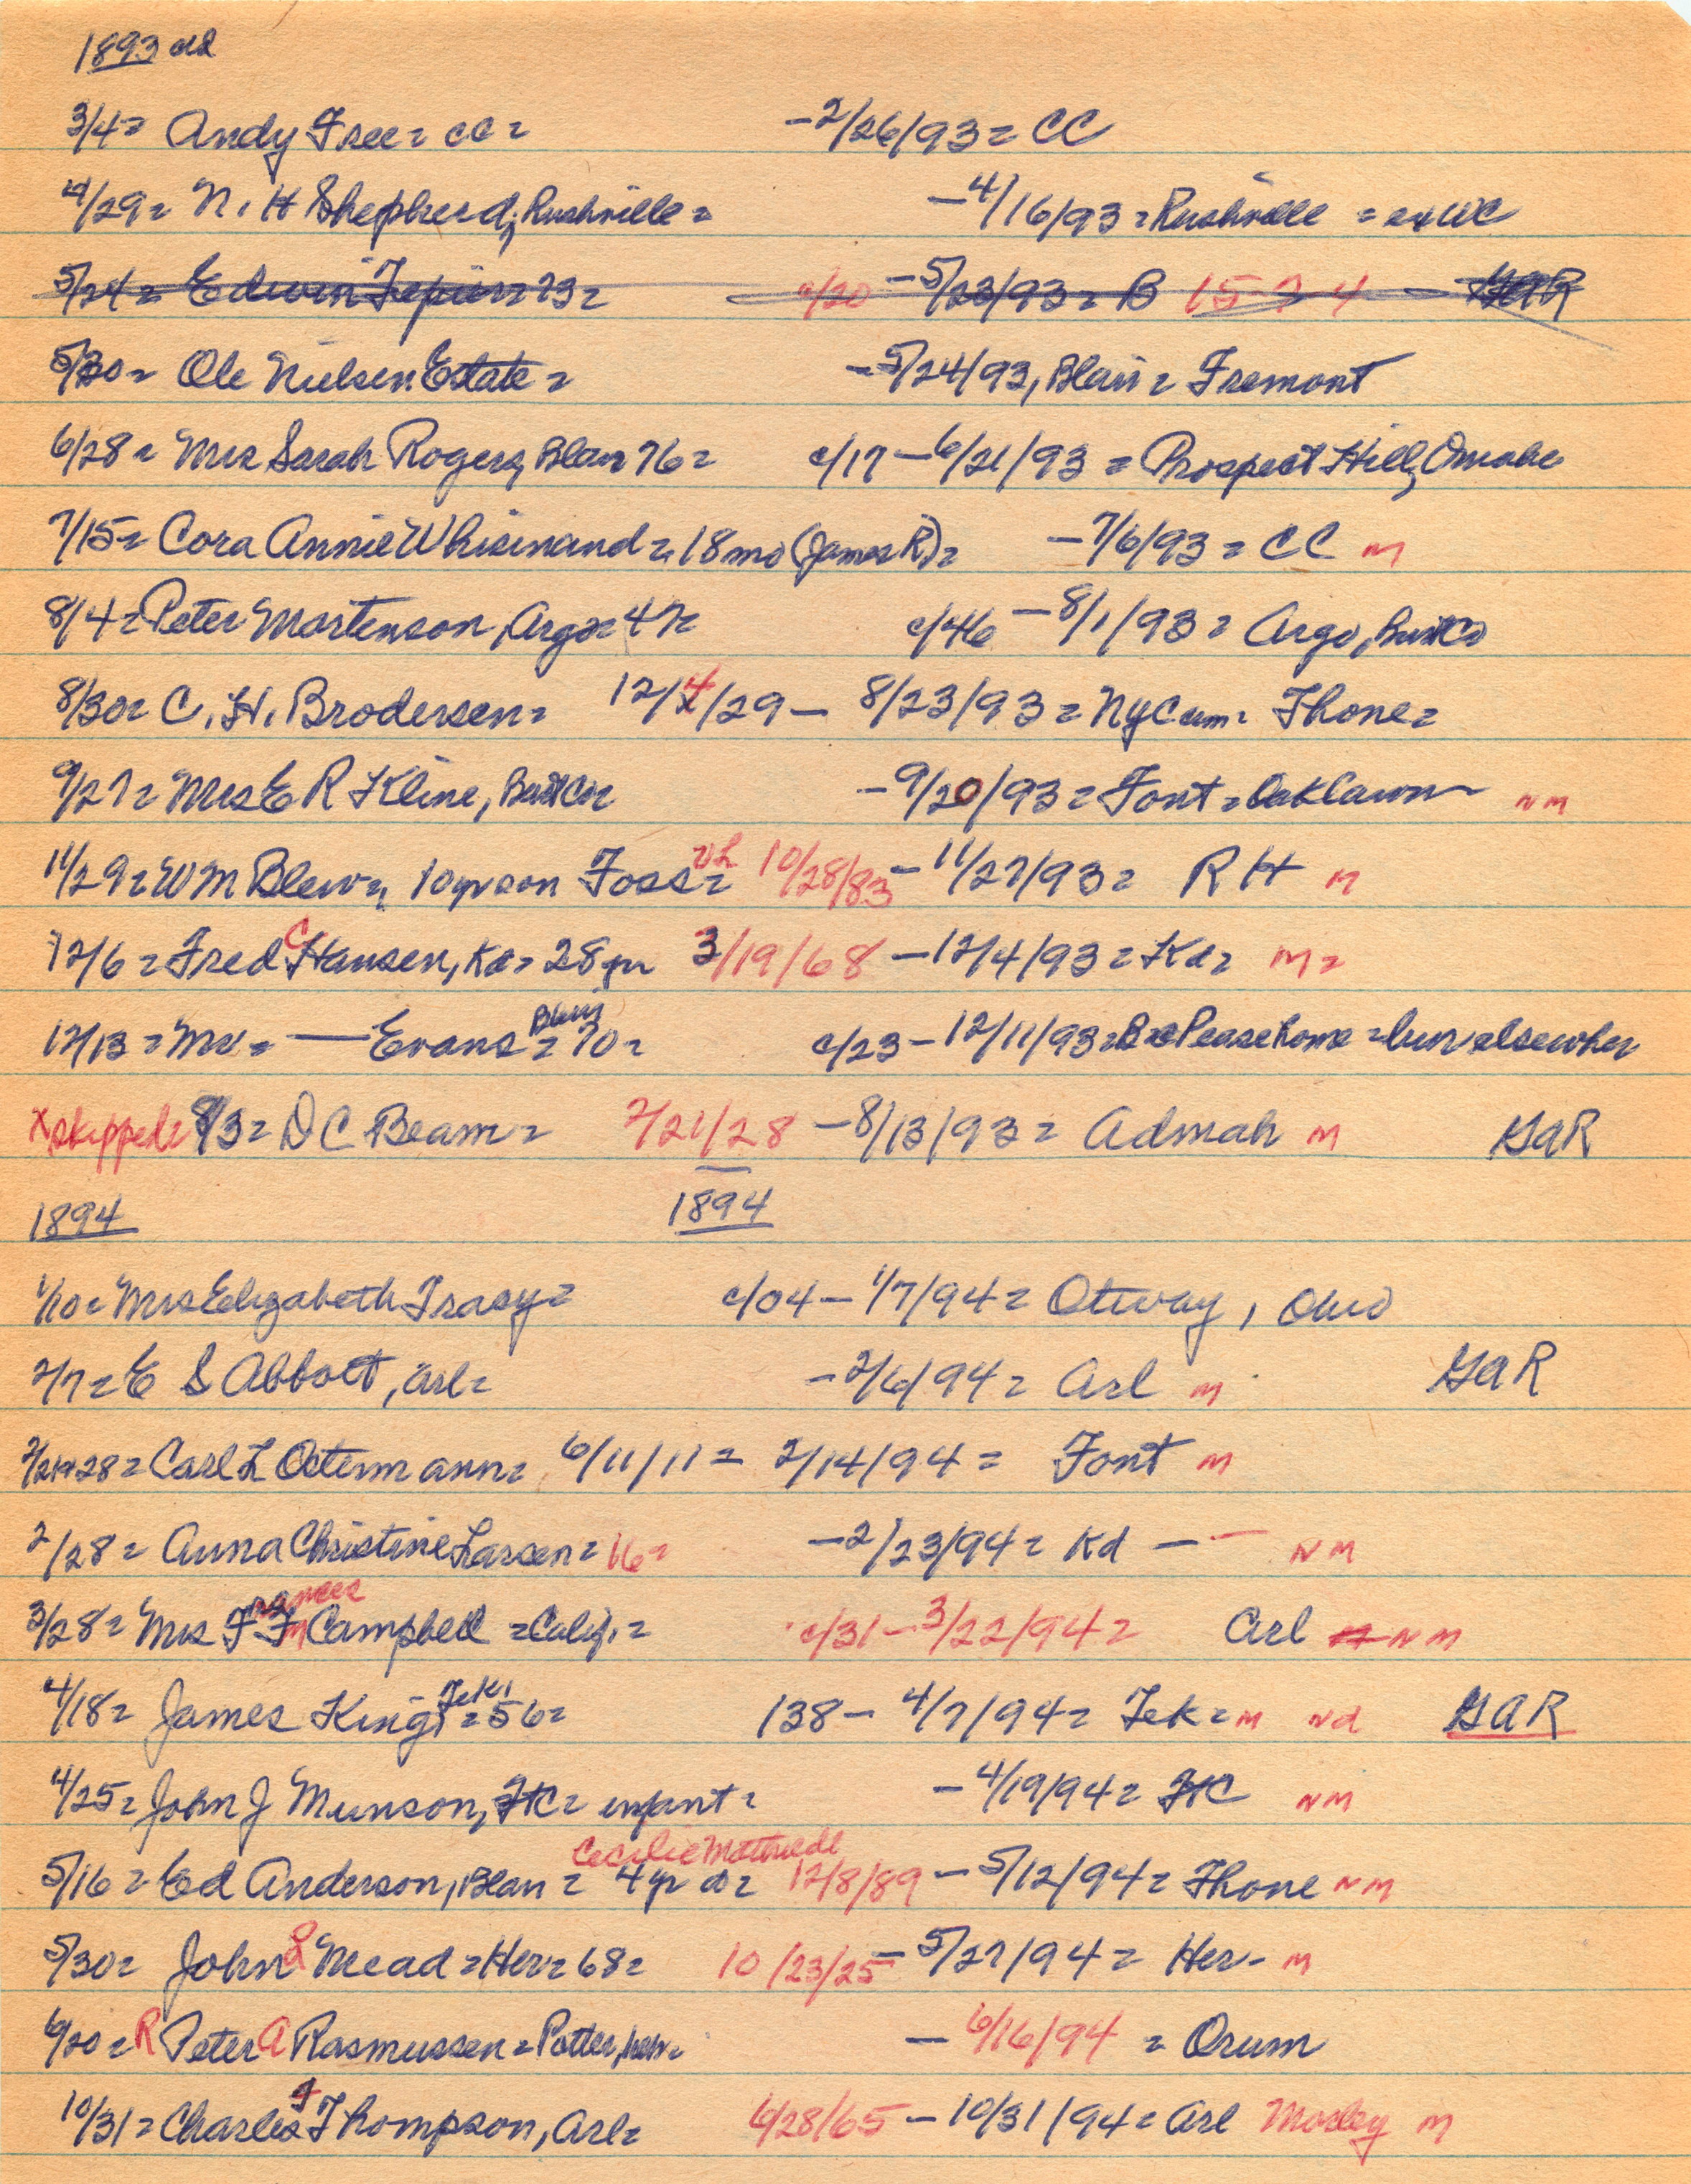 1893
3/4= Andy Free= CC= -2/26/93= CC
4/29= N. H Shepherd, Rushville= -4/16/93=Rushville =
5/24= Edwin 73= c/20 -5/23/93= B 15 7 4 - GAR
5/30= Ole Nielsen Estate= -5/24/93, Blair= Fremont
6/28= Mrs Sarah Rogers, Blair 76= c/17-6/21/93 = Prospect Hill, Omaha
7/15= Cora Annie Whisinand= 18 mo (James R)= -7/6/93= CC M
8/4=Peter Mortenson, Argo= 47= c/46 -8/1/93= Argo, BurtCo
8/30= C. H. Brodersen= 12/4/29- 8/23/93=Ny Cem= Fhone=
9/27= Mrs E R Kline, BurtCo= -9/20/93=Font=OakLawn NM
11/29=WM Blew, 10yr son Foss= VL 10/28/83-11/27/93= RH M
12/6=Fred C Hansen, Kd= 28yr 3/19/68 -12/4/93=Kd= M=
12/13=Mr= — Evans= Blair 70= c/23-12/11/93= Pease home =bur elsewher
X skipped= 8/3= D C Beam= 2/21/28 -8/13/93= Admah M GAR
1894 1894
1/10= Mrs Elizabeth Tracy= c/04-1/7/94= Otway, Ohio
2/7=E S Abbott, Arl= -2/6/94= Arl M GAR
28=Carl L Ostermann= 6/11/11= 2/14/94= Font M
2/28= Anna Christine Larsen= 16= -2/23/94= Kd — NM
3/28= Mrs F Frances M Campbell =Calif.= c/31-3/22/94= Arl NM
4/18= James King, Tek. =56= 138- 4/7/94= Tek=M Nd GAR
4/25= John J Munson, FtC= infant= -4/19/94= FtC NM
5/16=Ed Anderson, Blair= Cecilie Mathilde 4yr d= 12/8/89 -5/12/94= Fhone NM
5/30= John L Mead=Her=68= 10/23/25-5/27/94= Her- M
6/20=R Peter A Rasmussen=Potter, Neb= -6/16/94 = Orum
10/31=Charles F Thompson, Arl= 6/28/65-10/31/94=Arl Mosley M